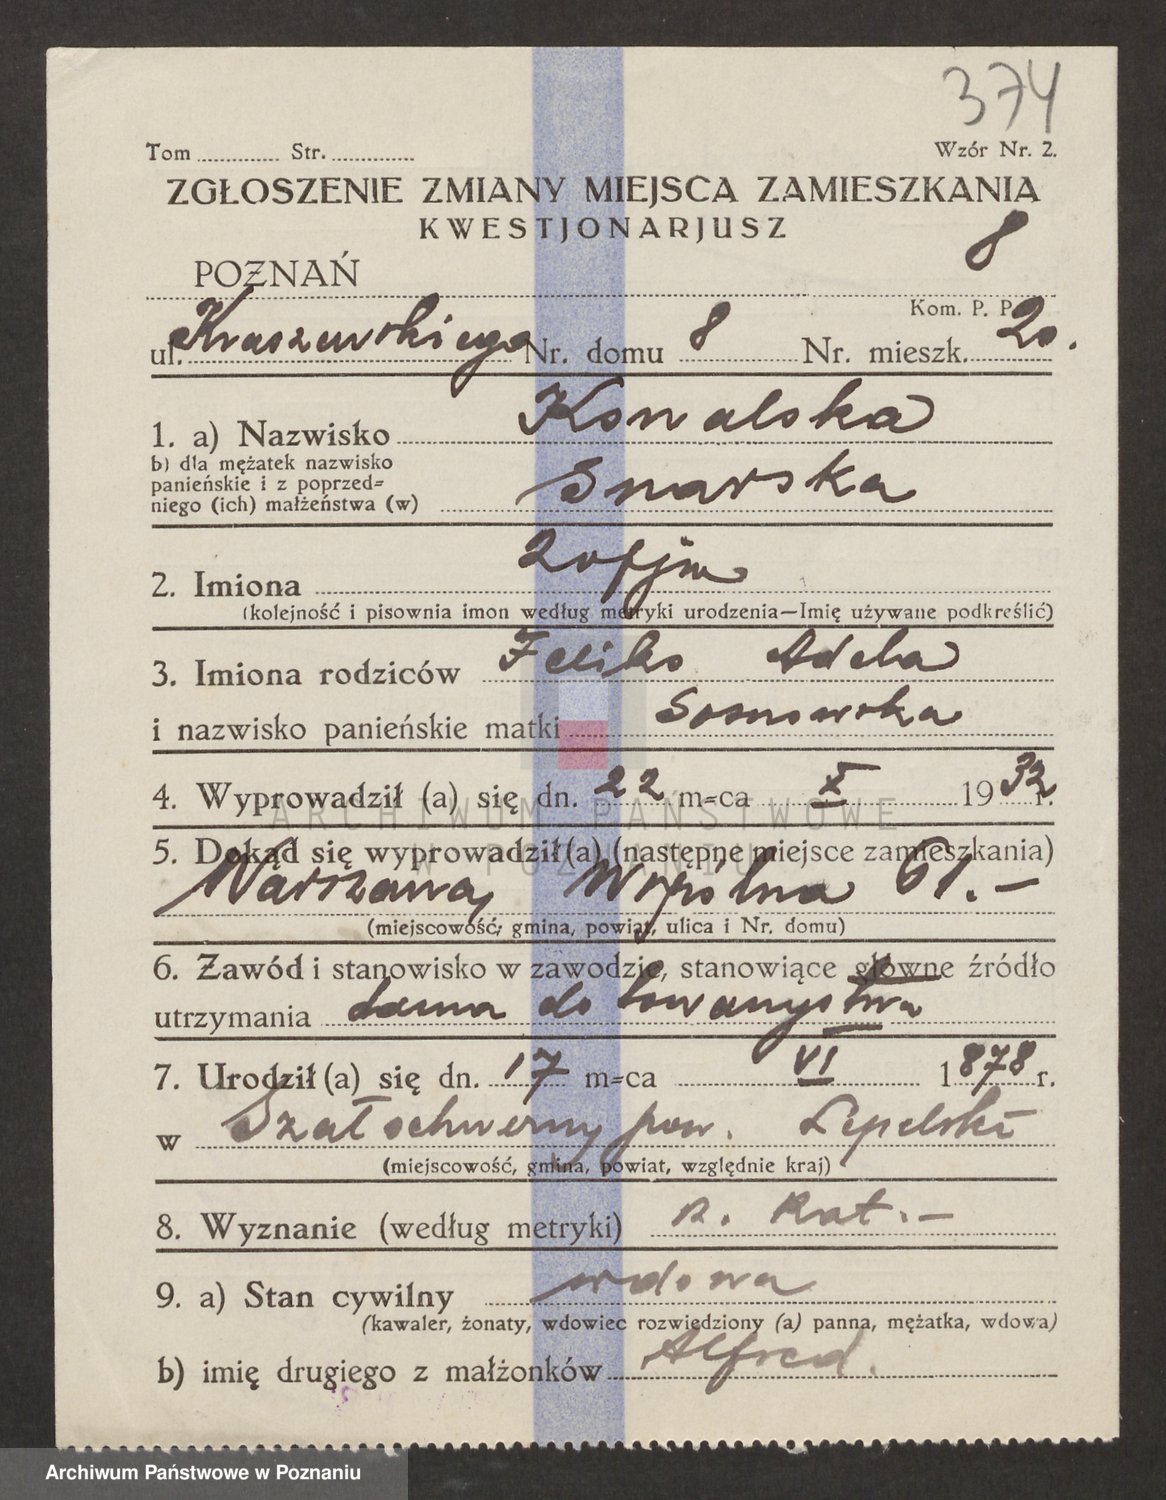 374
Tom ............ Str. ............
Wzór Nr. 2.
ZGŁOSZENIE ZMIANY MIEJSCA ZAMIESZKANIA
KWESTJONARJUSZ
8
POZNAŃ
Kom. P. P.
ul. Kraszewskiego Nr. domu 8 Nr. mieszk. 20.
1. a) Nazwisko Kowalska
b) dla mężatek nazwisko
panieńskie i z poprzed=
niego (ich) małżeństwa (w) Snarska
2. Imiona Zofja
(kolejność i pisownia imon według metryki urodzenia—Imię używane podkreślić)
3. Imiona rodziców Feliks Adela
i nazwisko panieńskie matki Sosnowska
4. Wyprowadził (a) się dn. 22 m=ca X 1932 r.
ARCHIWUM PAŃSTWOWE
W POZNANIU
5. Dokąd się wyprowadził (a) (następne miejsce zamieszkania)
Warszawa, Wspólna 61.—
(miejscowość, gmina, powiat, ulica i Nr. domu)
6. Zawód i stanowisko w zawodzie, stanowiące główne źródło
utrzymania dama do towarzystwa
7. Urodził (a) się dn. 17 m=ca VI 1878 r.
w pow. Lepelski
(miejscowość, gmina, powiat, względnie kraj)
8. Wyznanie (według metryki) r. kat.—
9. a) Stan cywilny wdowa
(kawaler, żonaty, wdowiec rozwiedziony (a) panna, mężatka, wdowa)
b) imię drugiego z małżonków Alfred.
Archiwum Państwowe w Poznaniu